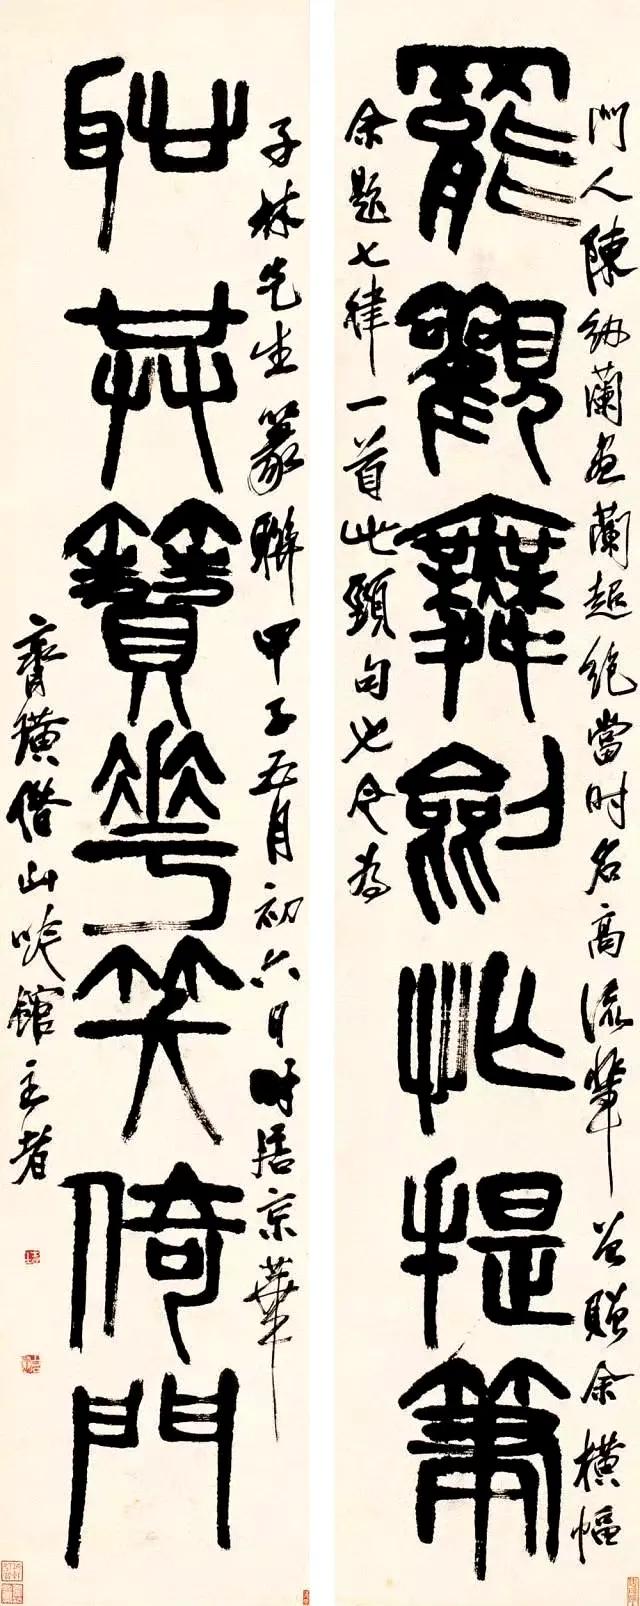 門人陳紉蘭畫蘭超絕當時名高流輩曾贈余橫幅
罷觀舞劍忙提筆
余題七律一首此頸句也今為
子林先生篆聯甲子五月初六日時居京華
恥共簪花笑倚門
齊璜借山吟館主者